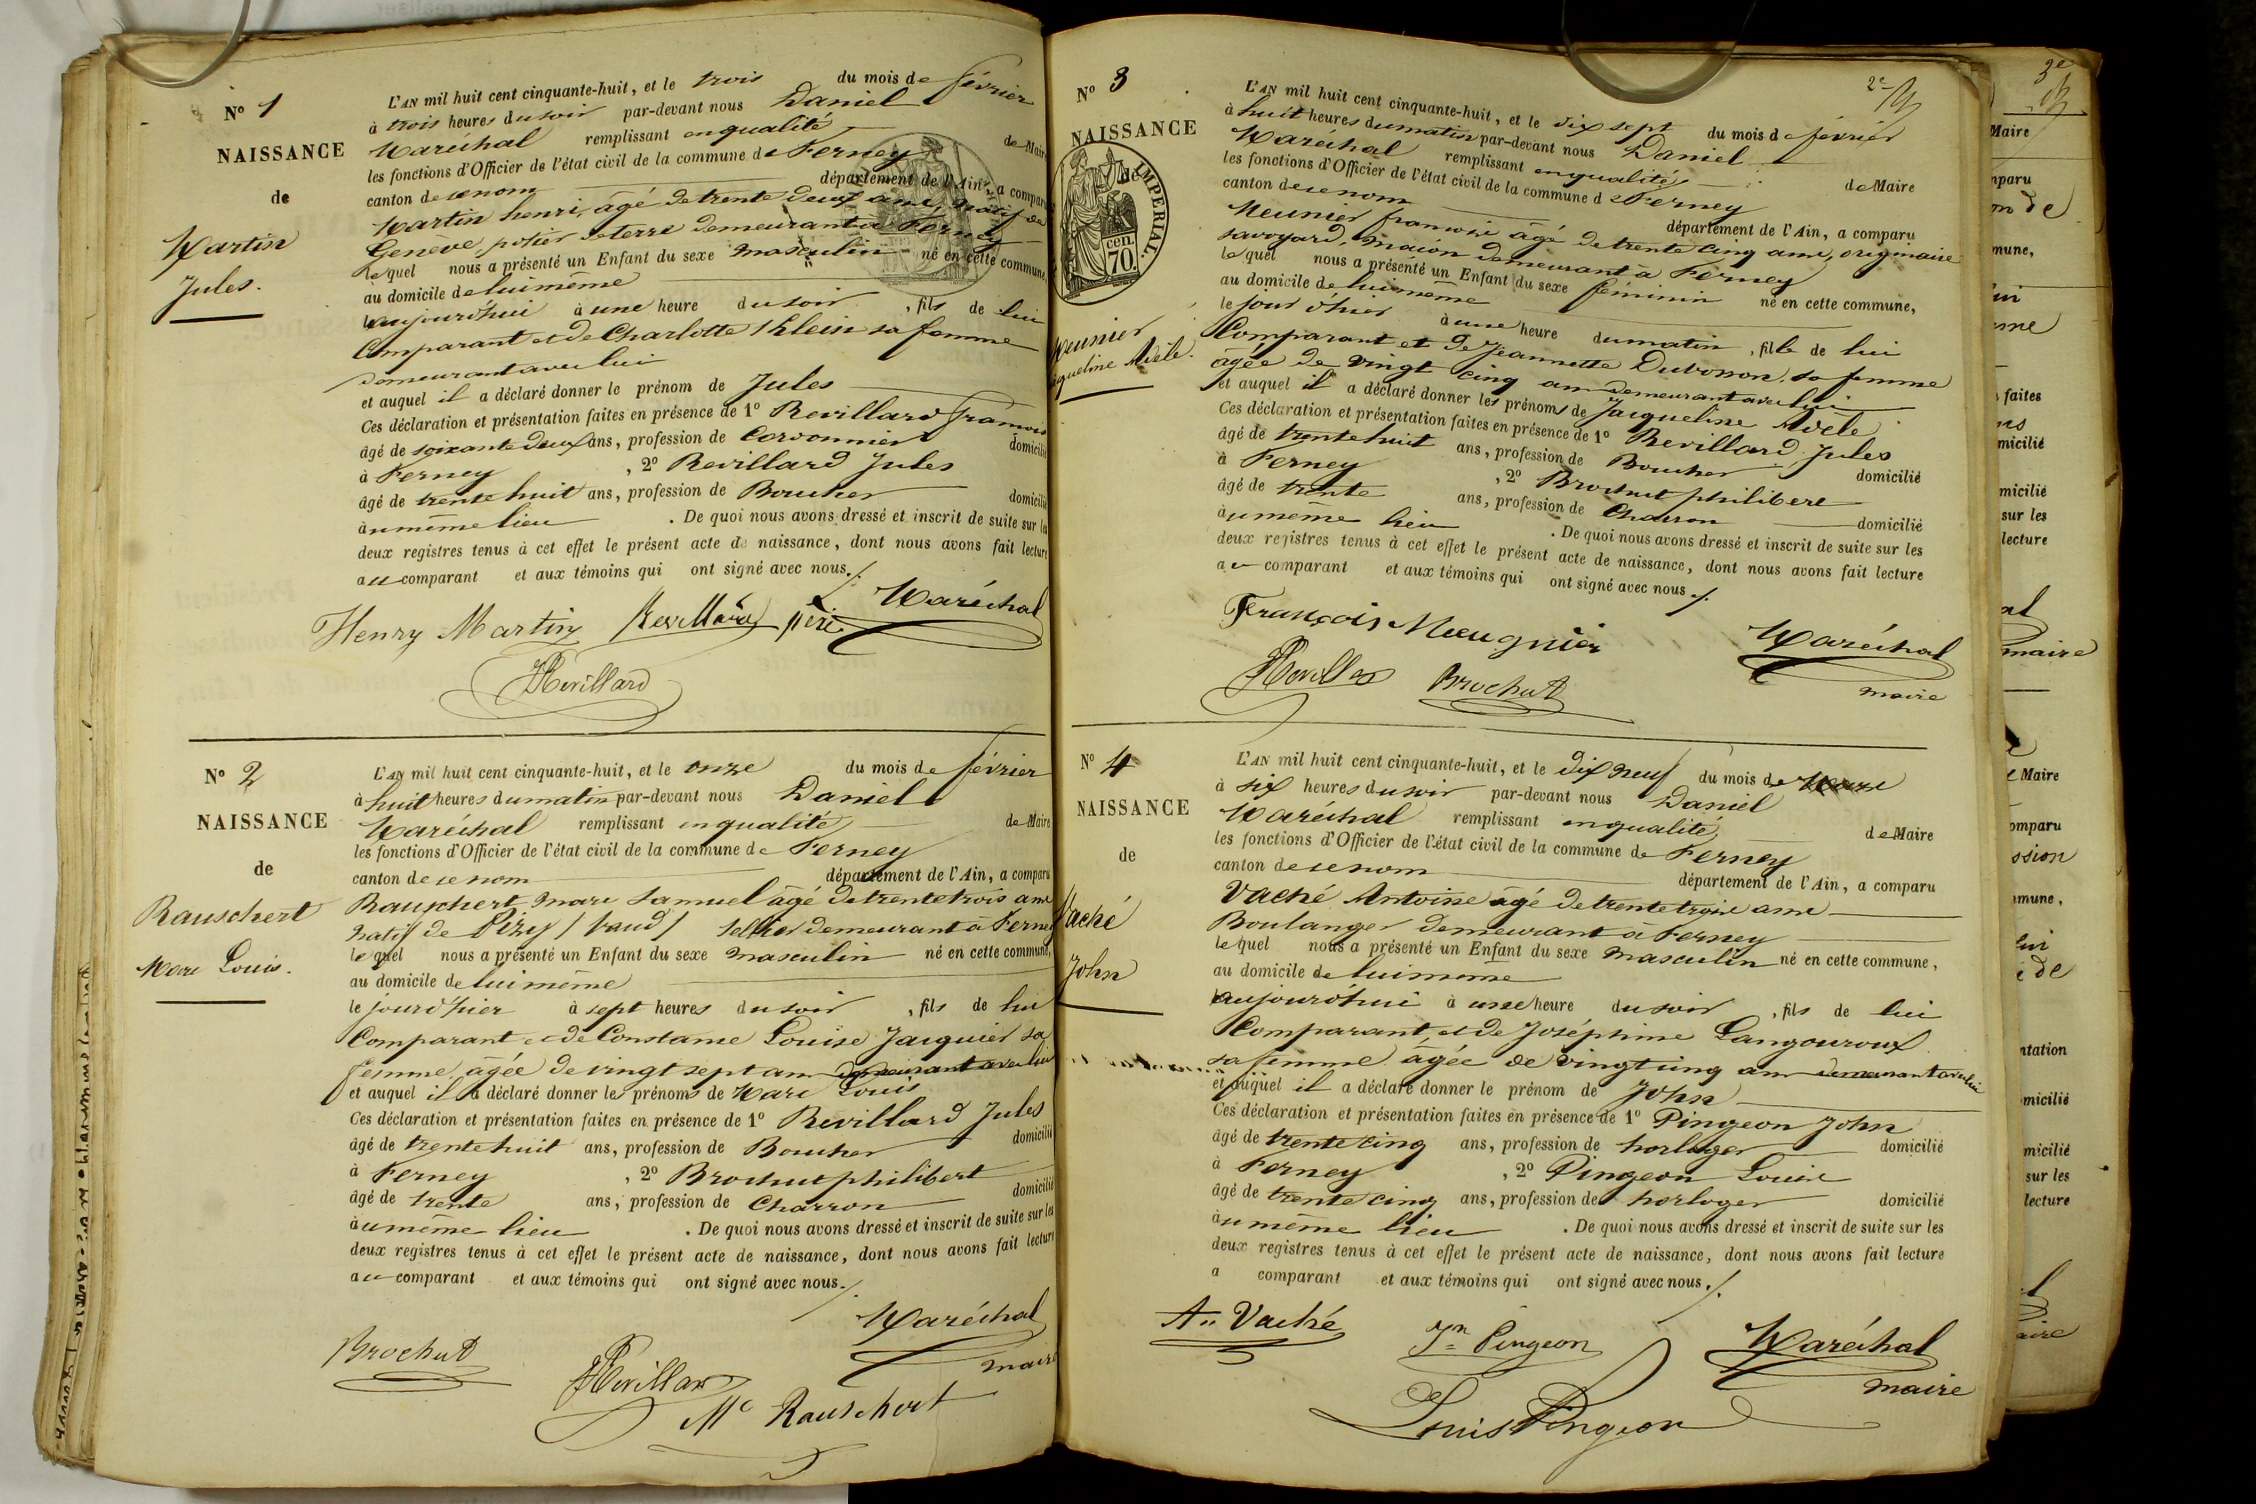 N° 1
NAISSANCE
de
Martin
Jules.
L'AN mil huit cent cinquante-huit, et le trois du mois de février
à trois heures du soir par-devant nous Daniel
Maréchal remplissant en qualité de Maire
les fonctions d'Officier de l'état civil de la commune de Ferney
canton de ce nom département de l'Ain, a comparu
Martin henri, âgé de trente deux ans, natif de
Genève, potier de terre demeurant à Ferney
lequel nous a présenté un Enfant du sexe masculin né en cette commune,
au domicile de lui même
aujourd'hui à une heure du soir, fils de lui
Comparant et de Charlotte Klein sa femme
demeurant avec lui
et auquel il a déclaré donner le prénom de Jules
Ces déclaration et présentation faites en présence de 1° Revillard françois
âgé de soixante deux ans, profession de Cordonnier domicilié
à Ferney, 2° Revillard Jules
âgé de trente huit ans, profession de Boucher domicilié
à u même lieu. De quoi nous avons dressé et inscrit de suite sur les
deux registres tenus à cet effet le présent acte de naissance, dont nous avons fait lecture
au comparant et aux témoins qui ont signé avec nous./.
Henry Martin Revillard père Maréchal
JRevillard
N° 2
NAISSANCE
de
Rauschert
Marc Louis.
L'AN mil huit cent cinquante-huit, et le onze du mois de février
à huit heures du matin par-devant nous Daniel
Maréchal remplissant en qualité de Maire
les fonctions d'Officier de l'état civil de la commune de Ferney
canton de ce nom département de l'Ain, a comparu
Rauschert marc Samuel âgé de trente trois ans
natif de Pizy / Vaud / Sellier demeurant à Ferney
lequel nous a présenté un Enfant du sexe masculin né en cette commune,
au domicile de lui même
le jour d'hier à sept heures du soir, fils de lui
Comparant et de Constance Louise Jacquier sa
femme, âgée de vingt sept ans demeurant avec lui
et auquel il a déclaré donner les prénoms de Marc Louis
Ces déclaration et présentation faites en présence de 1° Revillard Jules
âgé de trente huit ans, profession de Boucher domicilié
à Ferney, 2° Brochut philibert
âgé de trente ans, profession de Charron domicilié
à u même lieu. De quoi nous avons dressé et inscrit de suite sur les
deux registres tenus à cet effet le présent acte de naissance, dont nous avons fait lecture
au comparant et aux témoins qui ont signé avec nous./.
Maréchal
maire
Brochut JRevillard
Mc Rauschert
2e
N° 3
NAISSANCE
de
IMPERIAL.
cen.
70.
Meunier
Jacqueline Adèle.
L'AN mil huit cent cinquante-huit, et le dix sept du mois de février
à huit heures du matin par-devant nous Daniel
Maréchal remplissant en qualité de Maire
les fonctions d'Officier de l'état civil de la commune de Ferney
canton de ce nom département de l'Ain, a comparu
Meunier françois âgé de trente cinq ans, originaire
savoyard, maçon demeurant à Ferney
lequel nous a présenté un Enfant du sexe féminin né en cette commune,
au domicile de lui même
le jour d'hier à une heure du matin, fille de lui
Comparant et de Jeannette Dubosson, sa femme
agée de vingt cinq ans demeurant avec lui
et auquel il a déclaré donner les prénoms de Jacqueline Adèle
Ces déclaration et présentation faites en présence de 1° Revillard Jules
âgé de trente huit ans, profession de Boucher domicilié
à Ferney, 2° Brochut philibert
âgé de trente ans, profession de Charron domicilié
à u même lieu. De quoi nous avons dressé et inscrit de suite sur les
deux registres tenus à cet effet le présent acte de naissance, dont nous avons fait lecture
au comparant et aux témoins qui ont signé avec nous./.
François Meugnier Maréchal
JRevillard Brochut maire
N° 4
NAISSANCE
de
Vaché
John
L'AN mil huit cent cinquante-huit, et le dix neuf du mois de Mars
à six heures du soir par-devant nous Daniel
Maréchal remplissant en qualité de Maire
les fonctions d'Officier de l'état civil de la commune de Ferney
canton de ce nom département de l'Ain, a comparu
Vaché Antoine âgé de trente trois ans
Boulanger demeurant à Ferney
lequel nous a présenté un Enfant du sexe masculin né en cette commune,
au domicile de lui même
aujourd'hui à une heure du soir, fils de lui
Comparant et de Joséphine Langouroux
sa femme âgée de vingt cinq ans demeurant avec lui
et auquel il a déclaré donner le prénom de John
Ces déclaration et présentation faites en présence de 1° Pingeon John
âgé de trente cinq ans, profession de horloger domicilié
à Ferney, 2° Pingeon Louis
âgé de trente cinq ans, profession de horloger domicilié
à u même lieu. De quoi nous avons dressé et inscrit de suite sur les
deux registres tenus à cet effet le présent acte de naissance, dont nous avons fait lecture
a comparant et aux témoins qui ont signé avec nous./.
An Vaché Jn Pingeon Maréchal
maire
Louis Pingeon
3e
Maire
mparu
mune,
faites
micilié
micilié
sur les
lecture
maire
Maire
omparu
mune,
ntation
micilié
micilié
sur les
lecture